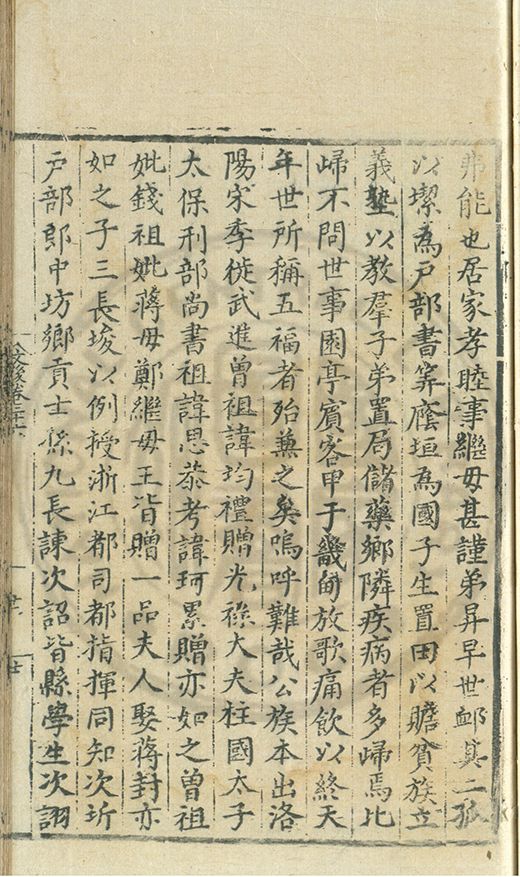 弗能也居家孝睦事繼母甚謹弟昇早世卹其二孤
以潔為戶部書筭廕垣為國子生置田以贍貧族立
義塾以教羣子弟置局儲藥鄉隣疾病者多歸焉比
歸不問世事園亭賓客甲于畿甸放歌痛飲以終天
年世所稱五福者殆兼之矣嗚呼難哉公族本出洛
陽宋季徙武進曾祖諱均禮贈光祿大夫柱國太子
太保刑部尚書祖諱思恭考諱珂累贈亦如之曾祖
妣錢祖妣蔣母鄭繼母王皆贈一品夫人娶蔣封亦
如之子三長埈以例授浙江都司都指揮同知次圻
戶部郎中坊鄉貢士孫九長諫次詔皆縣學生次詡